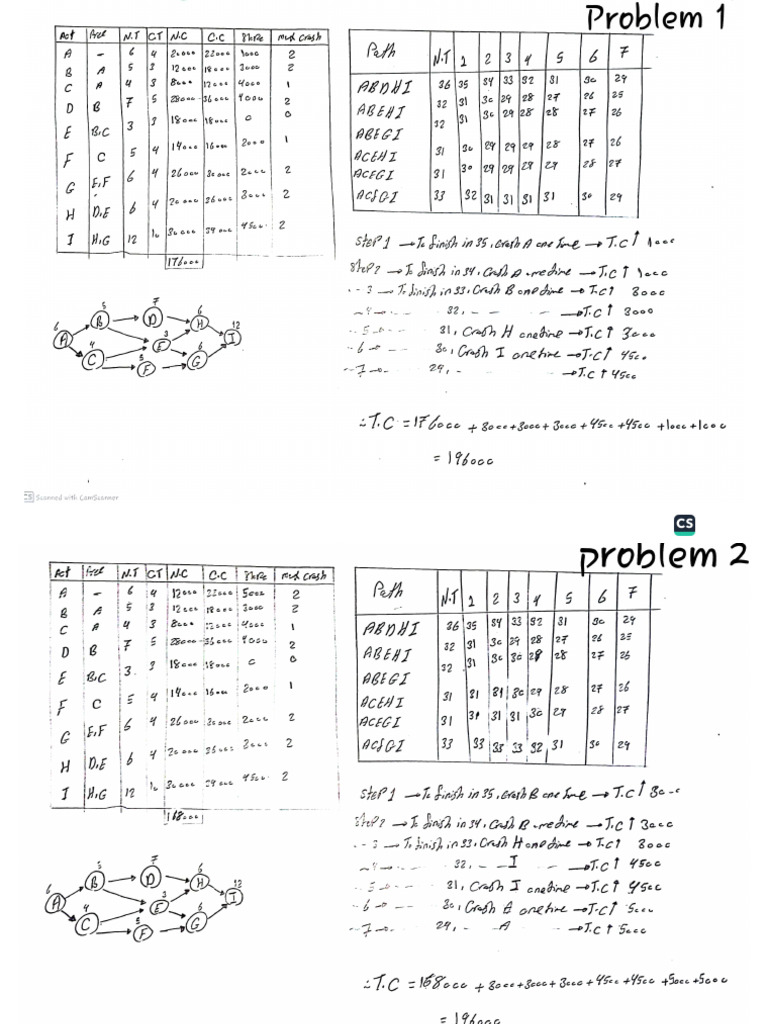 Problem 1
Act Pred N.T CT N.C C.C Slope max Crash
A - 6 4 20000 22000 1000 2
B A 5 3 12000 18000 3000 2
C A 4 3 8000 12000 4000 1
D B 7 5 28000 36000 4000 2
E B,C 3 3 18000 18000 0 0
F C 5 4 14000 16000 2000 1
G E,F 6 4 26000 30000 2000 2
H D,E 6 4 20000 26000 3000 2
I H,G 12 10 30000 39000 4500 2
176000
Path N.T 1 2 3 4 5 6 7
ABDHI 36 35 34 33 32 31 30 29
ABEHI 32 31 30 29 28 27 26 25
ABEGI 32 31 30 29 28 28 27 26
ACEHI 31 30 29 29 29 28 27 26
ACEGI 31 30 29 29 29 29 28 27
ACFGI 33 32 31 31 31 31 30 29
6 A 5 B 7 D 6 H 12 I
4 C 3 E 5 F 6 G
Step 1 → To finish in 35, Crash A one time → T.C ↑ 1000
Step 2 → To finish in 34, Crash A one time → T.C ↑ 1000
-- 3 → To finish in 33, Crash B one time → T.C ↑ 3000
- 4 → -- -- 32, - -- → T.C ↑ 3000
-- 5 → -- -- 31, Crash H one time → T.C ↑ 3000
- 6 → -- 30, Crash I one time → T.C ↑ 4500
-- 7 → -- 29, - → T.C ↑ 4500
∴ T.C = 176000 + 3000+3000+3000+4500+4500+1000+1000
= 196000
CS Scanned with CamScanner
CS
problem 2
Act Pred N.T CT N.C C.C Slope max Crash
A - 6 4 12000 22000 5000 2
B A 5 3 12000 18000 3000 2
C A 4 3 8000 12000 4000 1
D B 7 5 28000 36000 4000 2
E B,C 3 3 18000 18000 0 0
F C 5 4 14000 16000 2000 1
G E,F 6 4 26000 30000 2000 2
H D,E 6 4 20000 26000 3000 2
I H,G 12 10 30000 39000 4500 2
168000
Path N.T 1 2 3 4 5 6 7
ABDHI 36 35 34 33 32 31 30 29
ABEHI 32 31 30 29 28 27 26 25
ABEGI 32 31 30 30 29 28 27 26
ACEHI 31 31 31 30 29 28 27 26
ACEGI 31 31 31 31 30 29 28 27
ACFGI 33 33 33 33 32 31 30 29
6 A 5 B 7 D 6 H 12 I
4 C 3 E 5 F 6 G
Step 1 → To finish in 35, Crash B one time → T.C ↑ 3000
Step 2 → To finish in 34, Crash B one time → T.C ↑ 3000
-- 3 → To finish in 33, Crash H one time → T.C ↑ 3000
- 4 → -- -- 32, - - I → T.C ↑ 4500
-- 5 → -- -- 31, Crash I one time → T.C ↑ 4500
- 6 → -- 30, Crash A one time → T.C ↑ 5000
-- 7 → -- 29, - A → T.C ↑ 5000
∴ T.C = 168000 + 3000+3000+3000+4500+4500+5000+5000
= 196000